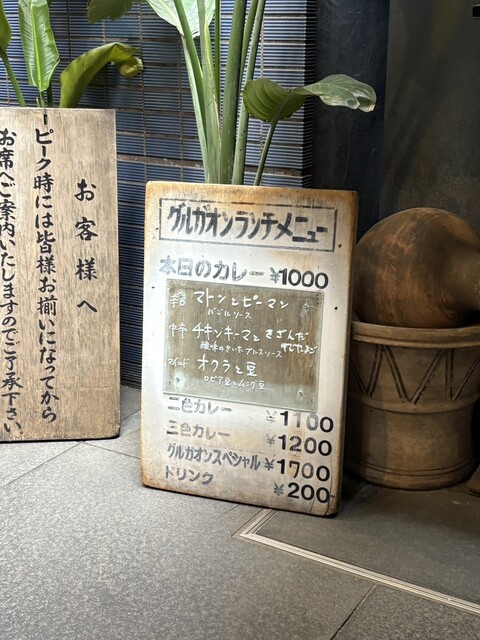 お客様へ
ピーク時には皆様お揃いになってから
お席へご案内いたしますのでご了承下さい
グルガオンランチメニュー
本日のカレー ¥1000
マトンとピーマン
バジルソース
チキンキーマン きざんだ
ゆでたまご
酸味のきいた
マイルド オクラと豆
ロビア豆とムング豆
二色カレー ¥1100
三色カレー ¥1200
グルガオンスペシャル ¥1700
ドリンク ¥200